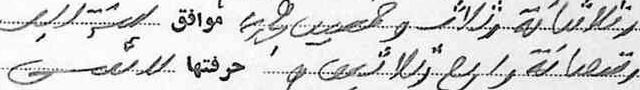 وثلاثمائة وثلاث وخمسين هجرية موافق
وتسعمائة واربع وثلاثين م حرفتها